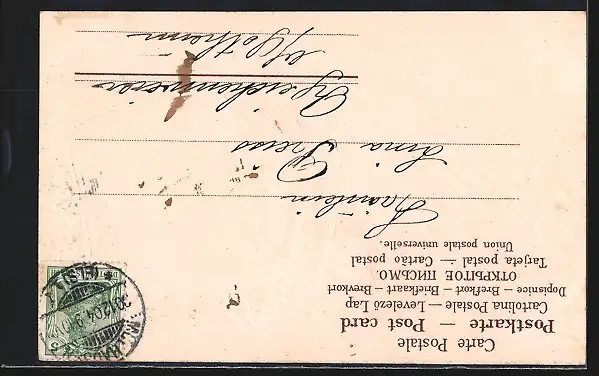 Carte Postale
Postkarte — Post card
Cartolina Postale — Levelező Lap
Dopisnice — Brefkort — Briefkaart — Brevkort
ОТКРЫТОЕ ПИСЬМО.
Tarjeta postal — Cartão postal
Union postale universelle.
Fräulein
Irma
Reichenweier
(ELS)
30.12.04